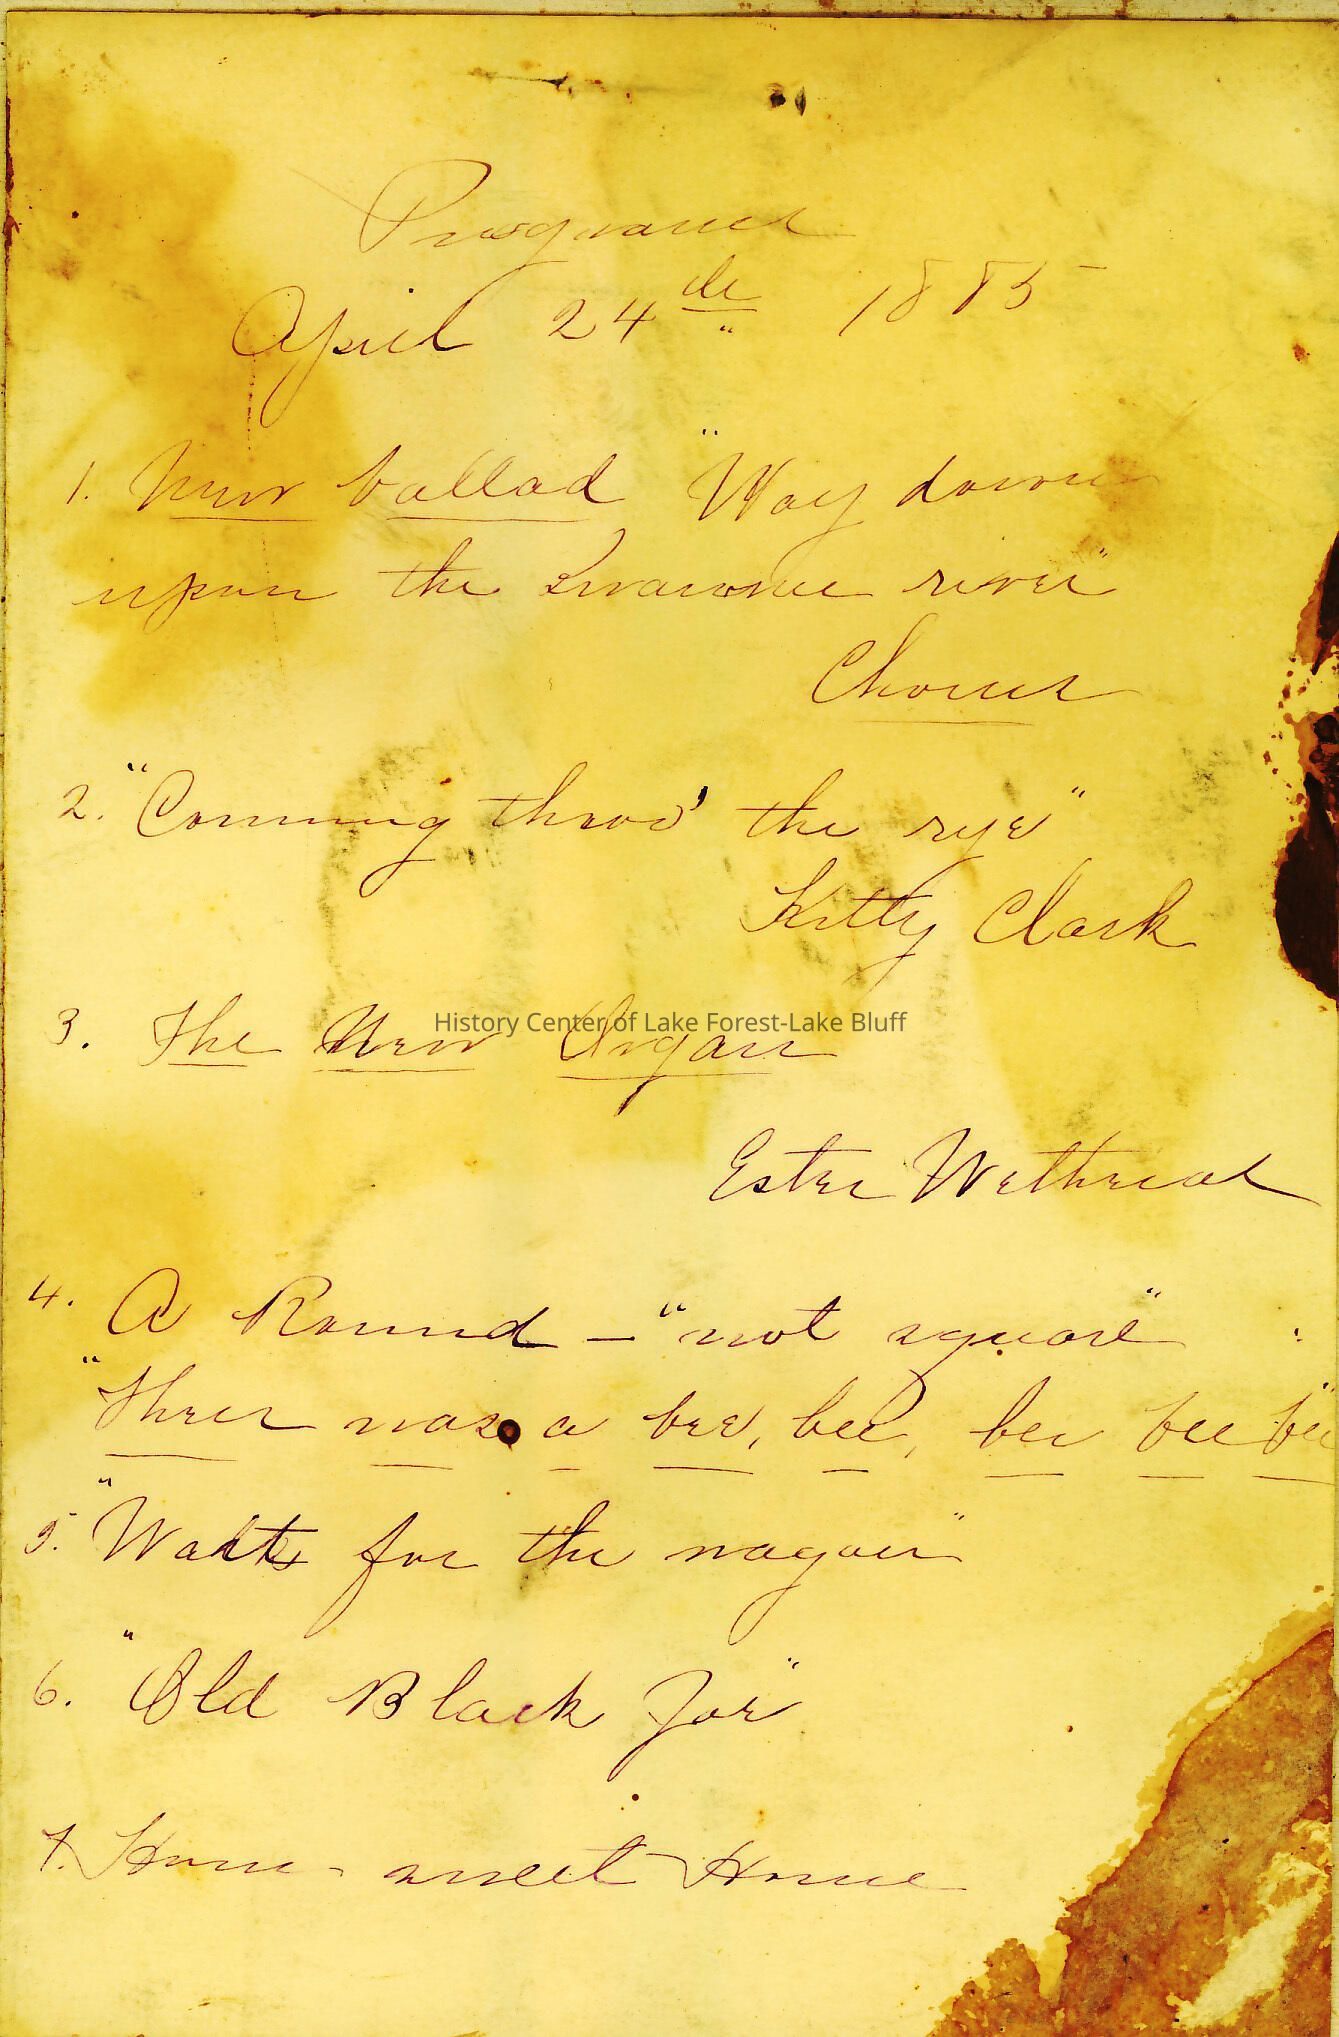 Programe
April 24th 1885
1. New ballad "Way down
upon the Swannee river"
Chorus
2. "Comming throo' the rye"
Kitty Clark
3. The New Organ
History Center of Lake Forest-Lake Bluff
Estre
4. A Round — "not square" :
"There was a bee, bee, bee bee bee"
5. "Waits for the wagon"
6. "Old Black Joe"
7. Home sweet Home